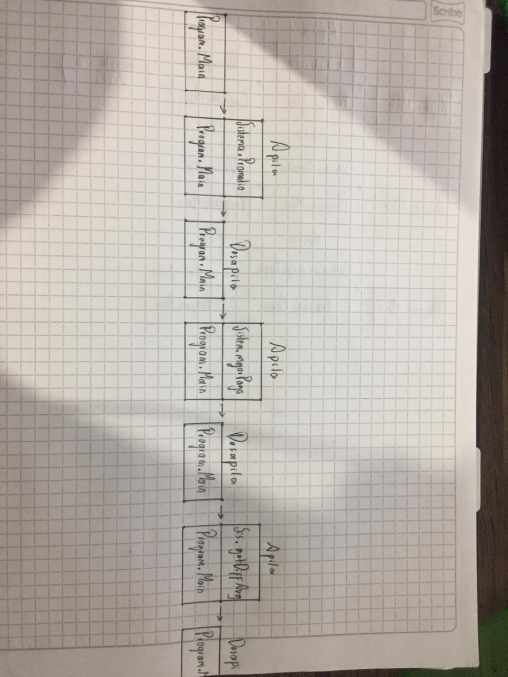 Scribe
Program.Main
Apila
Sistema.Promedio
Program.Main
Desapila
Program.Main
Apila
Sistem.mejorPaga
Program.Main
Desapila
Program.Main
Apila
Sis.getDiffAvg
Program.Main
Desapi
Program.M